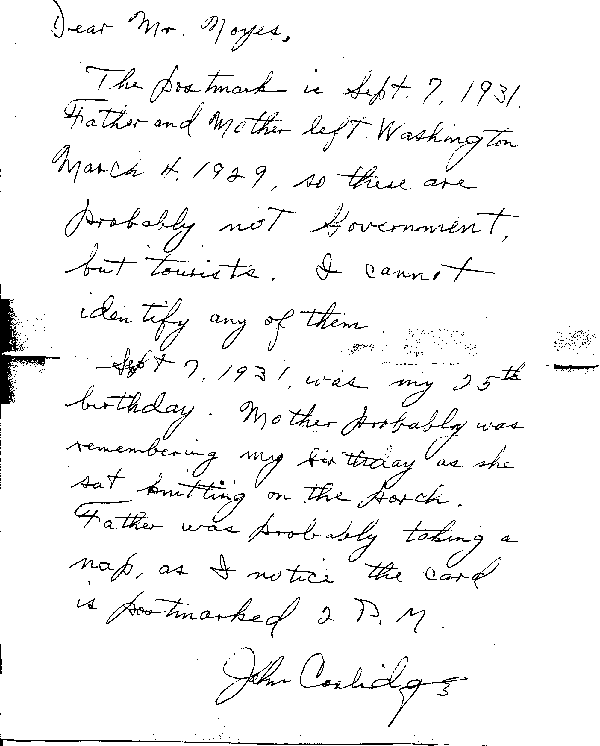 Dear Mr. Noyes,
The postmark is Sept. 7, 1931.
Father and Mother left Washington
March 4, 1929, so these are
probably not Government,
but tourists. I cannot
identify any of them.
Sept 7, 1931, was my 25th
birthday. Mother probably was
remembering my birthday as she
sat knitting on the porch.
Father was probably taking a
nap, as I notice the card
is postmarked 2 P.M.
John Coolidge